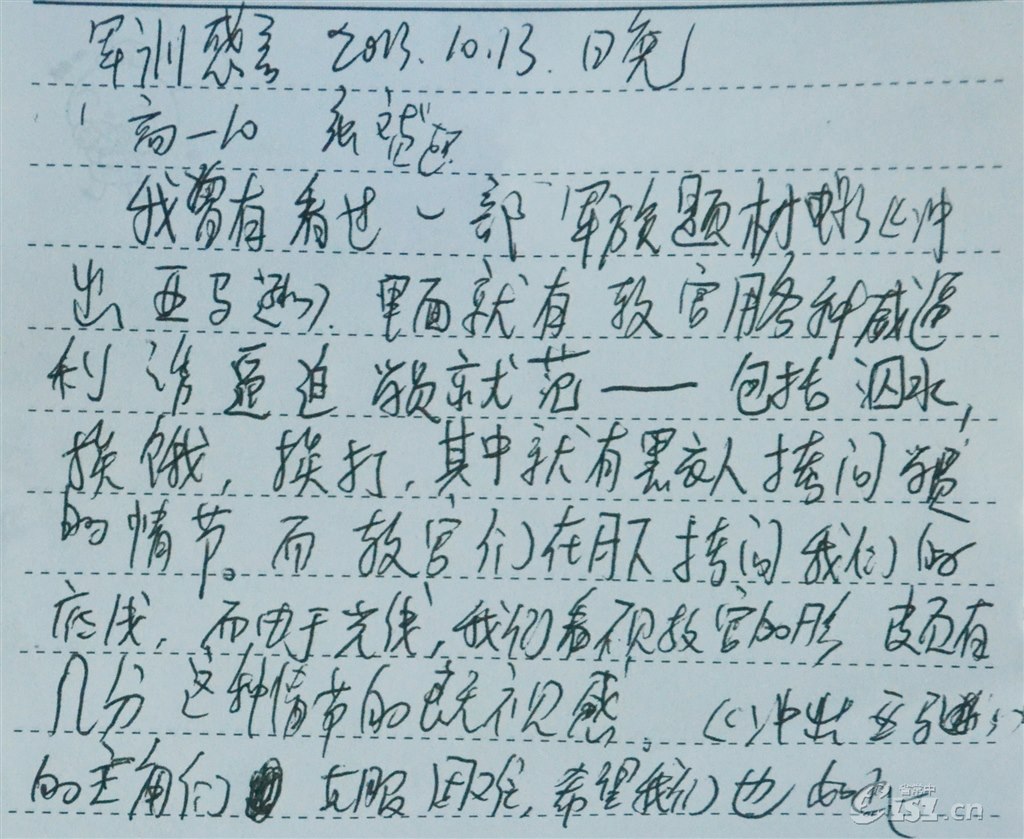 军训感言 2013.10.13. 日晚
高一10 张
我曾有看过一部军旅题材电影《冲
出亚马逊》. 里面就有教官用各种威逼
利诱逼迫学员就范——包括泅水,
挨饿, 挨打, 其中就有黑衣人拷问学员
的情节。而教官们在月下拷问我们的
底线, 而由于光线, 我们看视教官的形 颇有
几分这种情节的既视感。《冲出亚马逊》
的主角们 克服困难, 希望我们也如此
.cn